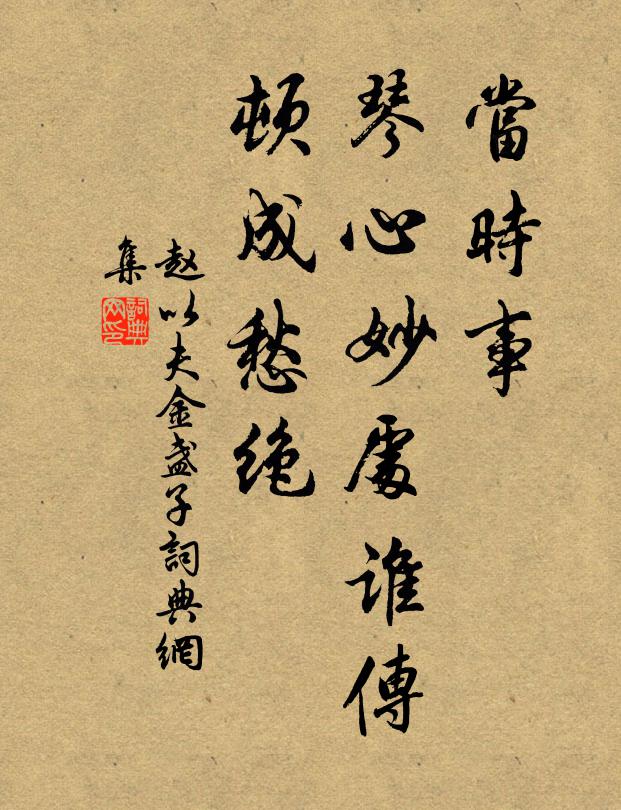 當時事
琴心妙處誰傳
頓成愁絶
赵以夫金盏子詞典網
集
詞典
网印